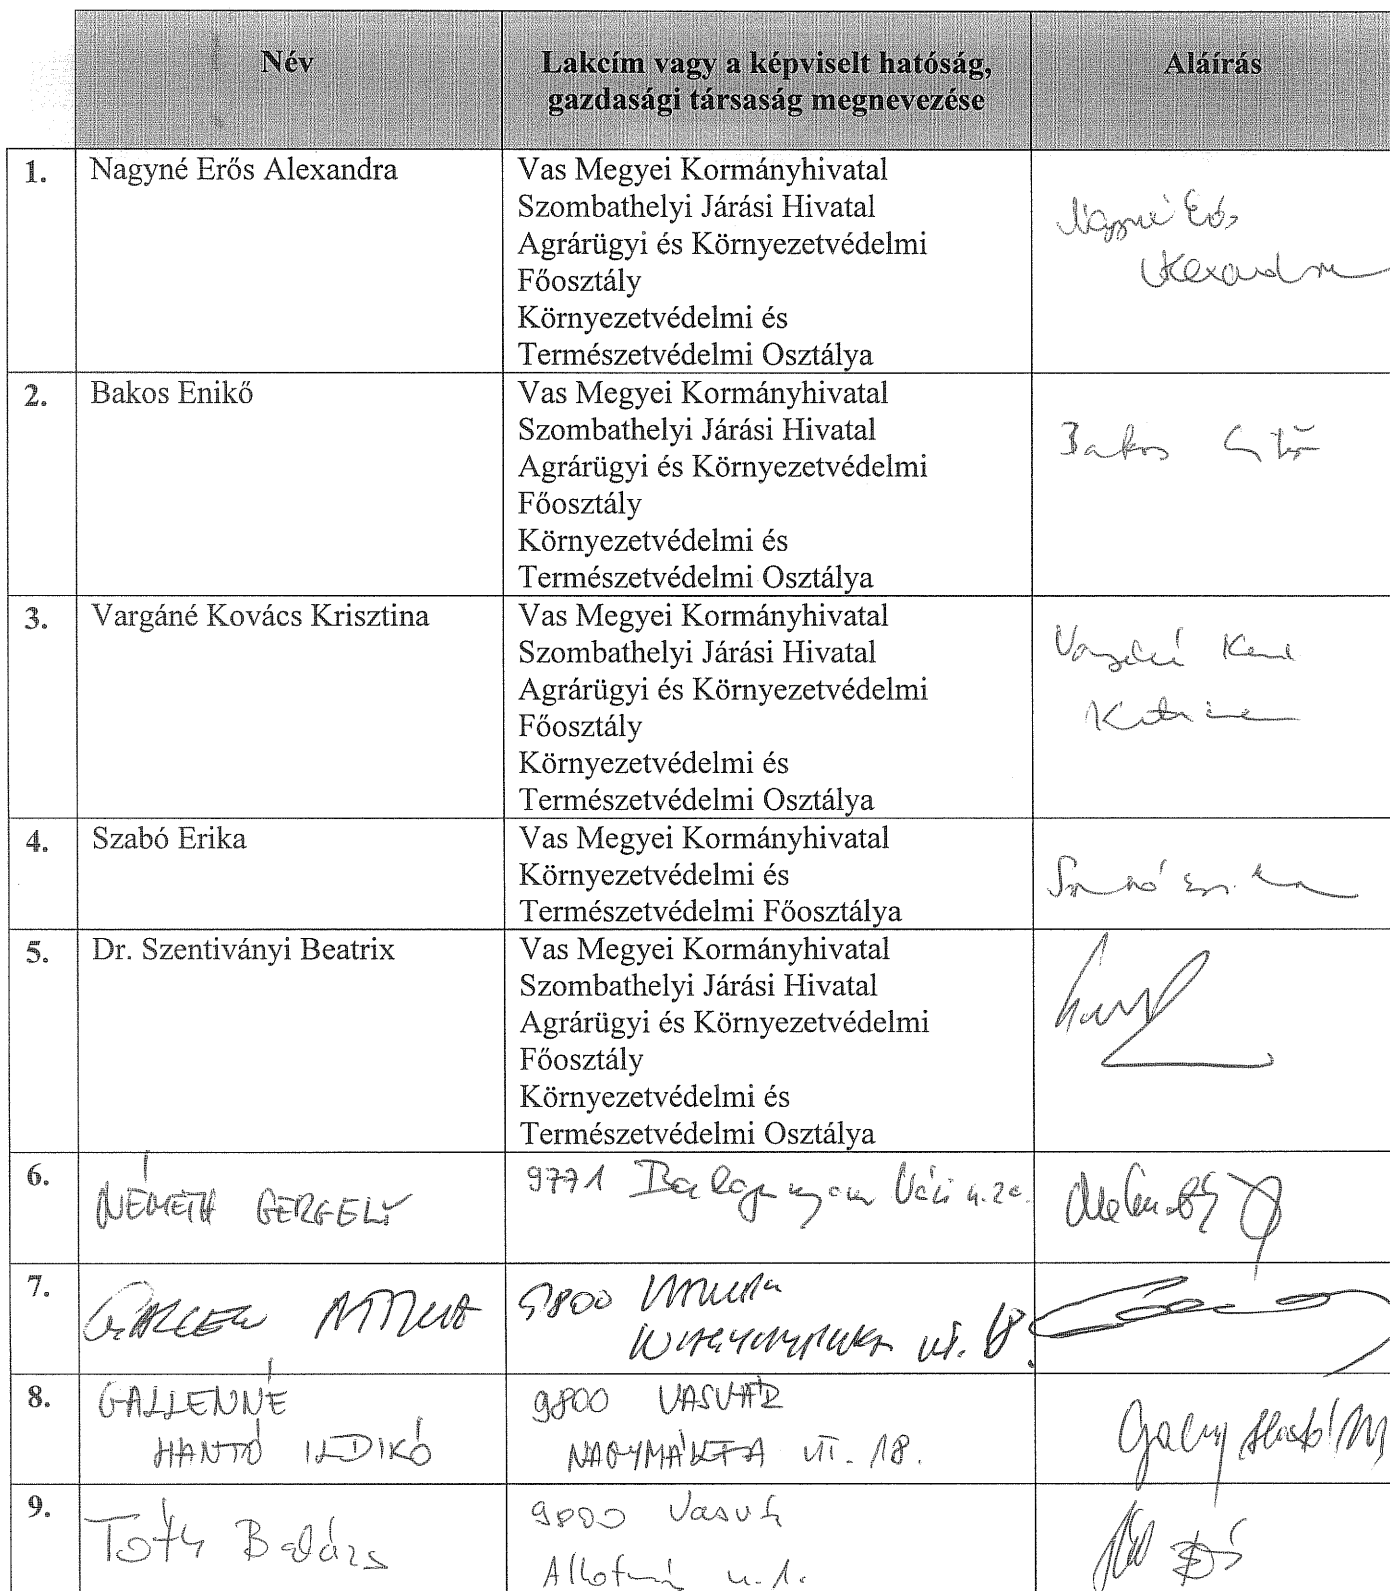 Név
Lakcím vagy a képviselt hatóság,
gazdasági társaság megnevezése
Aláírás
1.
Nagyné Erős Alexandra
Vas Megyei Kormányhivatal
Szombathelyi Járási Hivatal
Agrárügyi és Környezetvédelmi
Főosztály
Környezetvédelmi és
Természetvédelmi Osztálya
Nagyné Erős
Alexandra
2.
Bakos Enikő
Vas Megyei Kormányhivatal
Szombathelyi Járási Hivatal
Agrárügyi és Környezetvédelmi
Főosztály
Környezetvédelmi és
Természetvédelmi Osztálya
Bakos Enikő
3.
Vargáné Kovács Krisztina
Vas Megyei Kormányhivatal
Szombathelyi Járási Hivatal
Agrárügyi és Környezetvédelmi
Főosztály
Környezetvédelmi és
Természetvédelmi Osztálya
4.
Szabó Erika
Vas Megyei Kormányhivatal
Környezetvédelmi és
Természetvédelmi Főosztálya
Szabó Erika
5.
Dr. Szentiványi Beatrix
Vas Megyei Kormányhivatal
Szombathelyi Járási Hivatal
Agrárügyi és Környezetvédelmi
Főosztály
Környezetvédelmi és
Természetvédelmi Osztálya
6.
NÉMETH GERGELY
9771 Balogunyom
7.
ATTILA
9800
8.
GALLENNÉ
HANTÓ ILDIKÓ
9800 VASVÁR
NAGYMÁKFA ÚT. 18.
9.
Tóth Balázs
9800 Vasvár
u. 1.